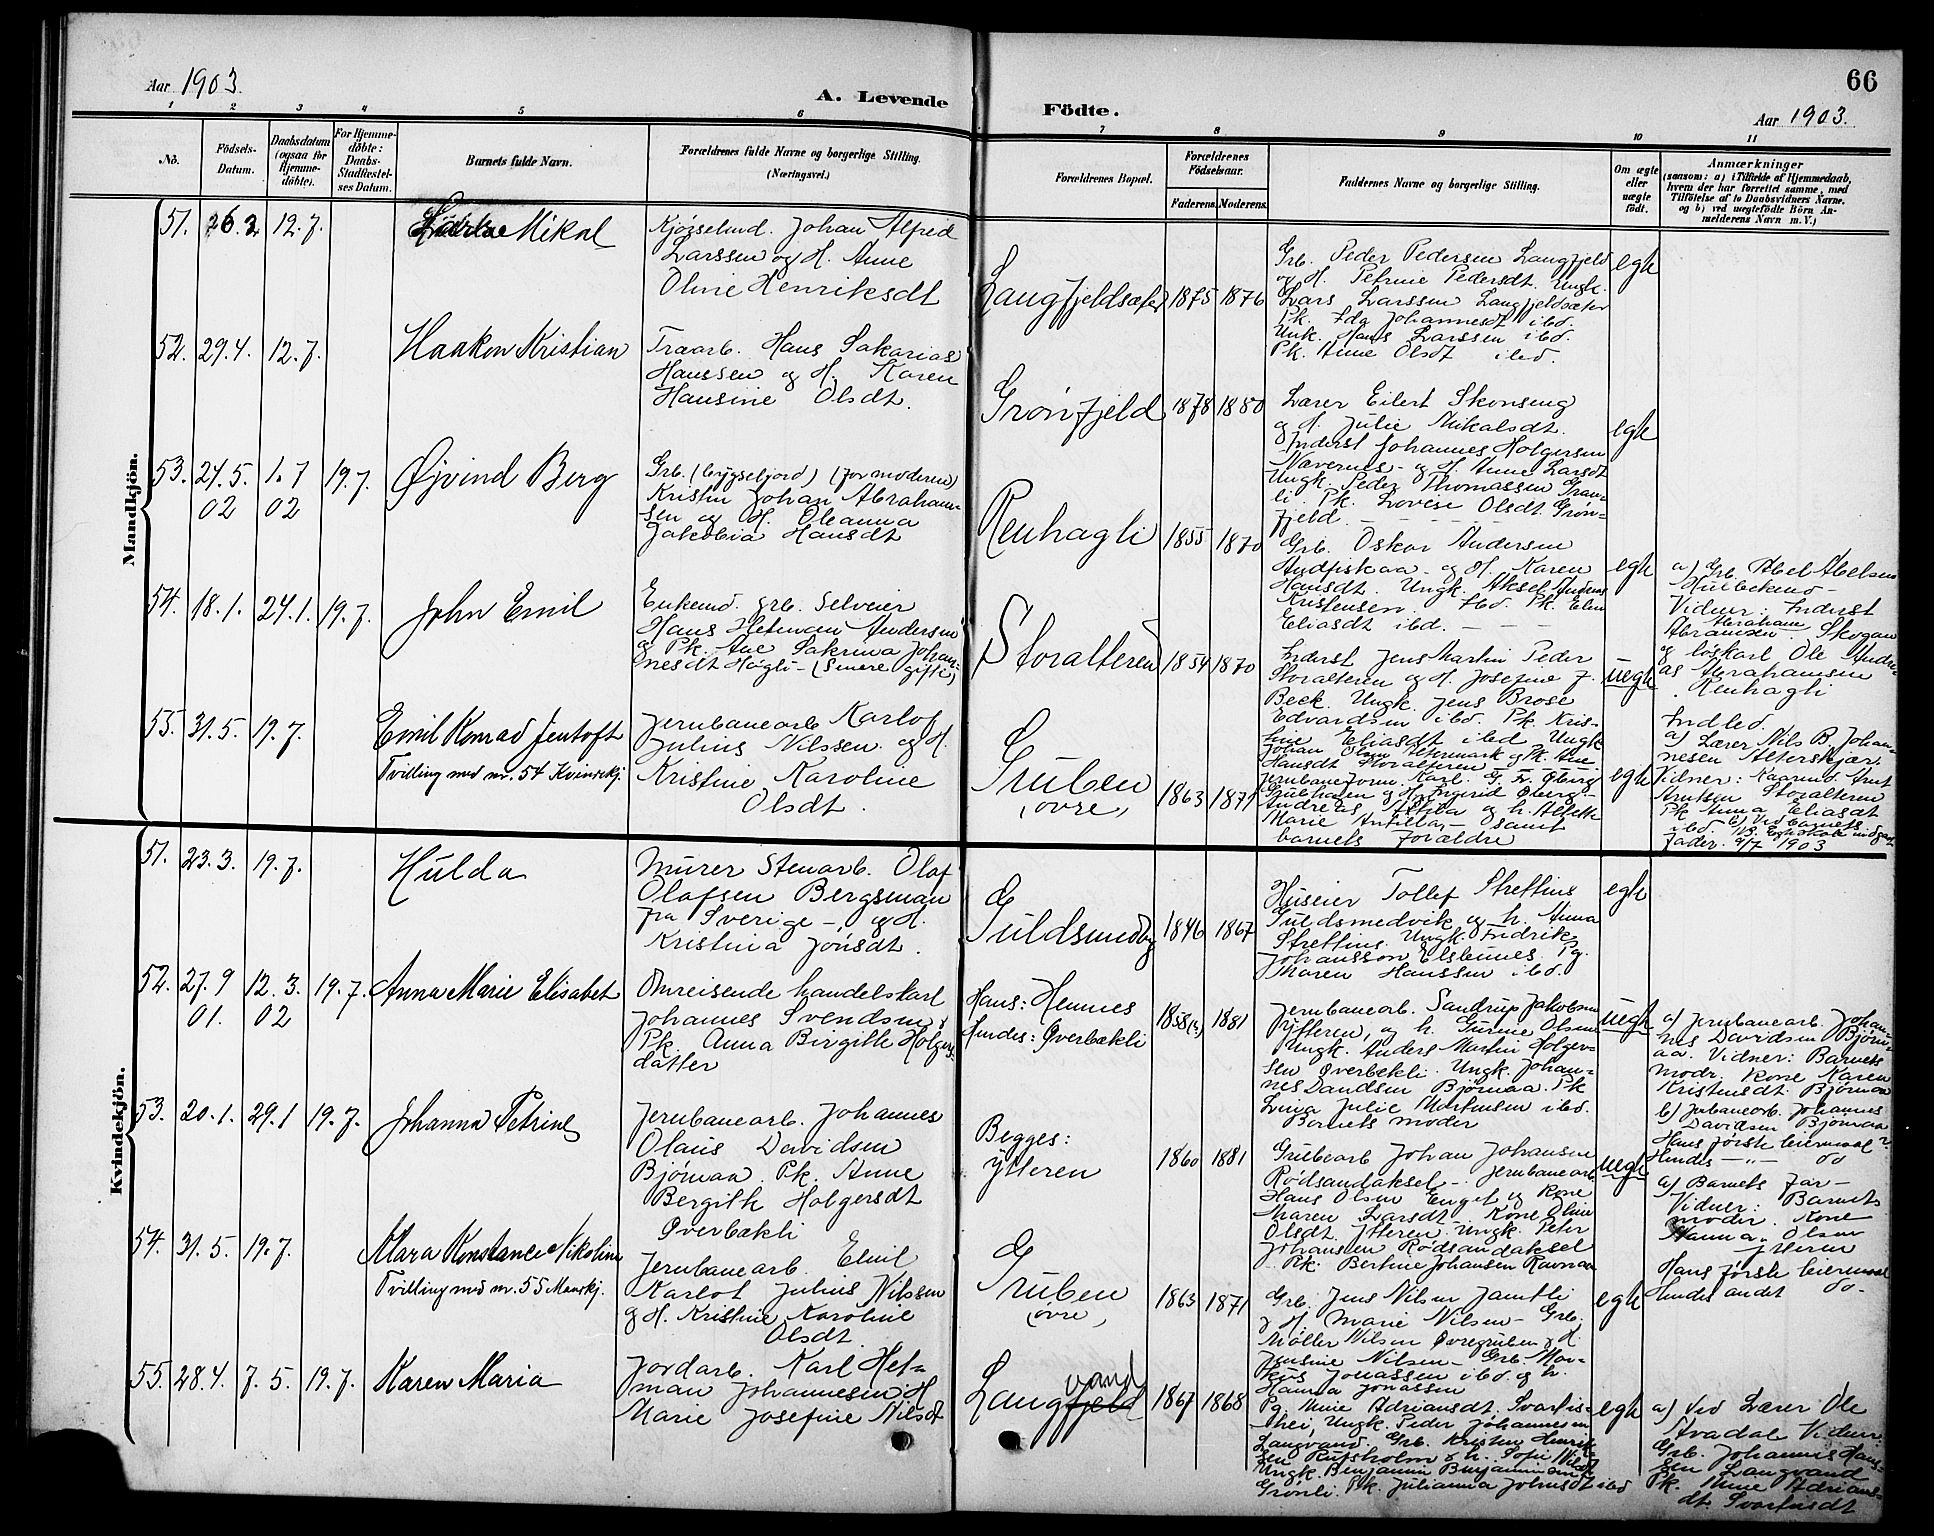 Aar 1903.
A. Levende
Födte.
66
Aar 1903.
1 2 3 4 5 6 7 8 9 10 11
No.
Födsels-Datum.
Daabsdatum (ogsaa for Hjemmedöbte).
For Hjemmedöbte: Daabs-Stadfæstelses Datum.
Barnets fulde Navn.
Forældrenes fulde Navne og borgerlige Stilling.
(Næringsvei.)
Forældrenes Bopæl.
Forældrenes Födselsaar.
Faderens. Moderens.
Faddernes Navne og borgerlige Stilling.
Om ægte eller uægte födt.
Anmærkninger
(saasom: a) i Tilfælde af Hjemmedaab,
hvem der har forrettet samme, med
Tilföielse af to Daabsvidners Navne,
og b) ved uægtefödte Börn An-
melderens Navn m. V.)
Mandkjön.
51. 26.2 12.7. Mikal
Johan Alfred
Larssen og H. Anne
Oline Henriksdt
Langfjeldsæter 1875 1876
Grb. Peder Pedersen Langfjeld
og H. Petrine Pedersdt. Ungk.
Lars Larssen Langfjeldsæter
Pk. Ida Johannesdt ibd.
Ungk. Hans Larssen ibd.
Pk. Anne Olsdt ibd.
egte
52. 29.4. 12.7. Haakon Kristian
Hans Sakarias
Hanssen og H. Karen
Hansine Olsdt.
Grønfjeld 1878 1880
Lærer Eilert Skonseng
og H. Julie Mikalsdt.
Inderst Johannes Holgersen
Nævernes - og H. Anne Larsdt
Ungk. Peder Thomassen Gran-
li. Pk. Lovise Olsdt. Grøn-
fjeld.
egte
53. 24.5.02 1.7 02 19.7. Øjvind Berg
Grb. (bygseljord) (for moderen)
Kristen Johan Abraham-
sen og H. Oleanna
Jakobia Hansdt
Renhagli 1855 1870
Grb. Oskar Andersen
Andfiskaa - og H. Karen
Hansdt. Ungk. Aksel Anders
Kristensen. Ibd. Pk. Elen
Eliasdt ibd.
egte
a) Grb. Abel Abelsen
Vidner: Inderst
Abraham
Abramsen. Skogan
og løskarl Ole Andre-
as Abrahamsen
Renhagli
54. 18.1. 24.1. 19.7. John Emil
Enkemd. grb. Selveier
Hans Hetman Andersen
og Pk. Ane Sakrina Johan-
nesdt Høgli - (Senere gifte)
Storalteren 1854 1870
Inderst Jens Martin Peder
Storalteren og H. Josefine J.
Beck. Ungk. Jens Brose
Edvardsen ibd. Pk. Kris-
tine Eliasdt ibd Ungk
Johan Olsen Altermark og Pk. Ane
Hansdt Storalteren
uegte
Indled.
a) Lærer Nils B. Johan-
nesen Alterskjær.
Vidner: Kaarmd Arnt
Arntsen Storalteren
Pk Anna Eliasdt
ibd. b) Ved barnets
fader. 9/7 1903
55. 31.5 19.7. Emil Konrad Jentoft
Tvilling med nr. 54 Kvindekj.
Jernbanearb Karlof
Julius Nilssen og H.
Kristine Karoline
Olsdt.
Gruben
(øvre) 1863 1871
Jernbaneform. Karl G. Fr. Øberg
Gubhagen og H. Ingrid Øberg -
Andreas Antilla og h. Altette
Marie Antilla, - samt
barnets forældre
egte
Kvindekjön.
51. 23.3. 19.7. Hulda
Murer Stenarb. Olaf
Olafsen Bergsman
fra Sverige -, og H.
Kristina Jonsdt.
Guldsmedvig 1846 1867
Huseier Tollef Streffins
Guldsmedvik og h. Anna
Streffins. Ungk. Fredrik
Johansson Elsbennes. Pg.
Maren Hanssen ibd.
egte
52. 27.9 01. 12.3. 02 19.7. Anna Marie Elisabet
Omreisende handelskarl
Johannes Svendsen &
Pk. Anna Birgitte Holgers-
datter
Hans: Hemnes
Hendes: Øverbækli 1858(?) 1881
Jernbanearb. Sandrup Jakobsen
Ytteren, og h. Gurine Olsen
Ungk. Anders Martin Holger-
sen Øverbækli. Ungk. Johan-
nes Davidsen Bjørnaa. Pk
Lina Julie Mortensen ibd.
Barnets moder
uegte
a) Jernbanearb. Johan-
nes Davidsen Bjørn-
aa. Vidner: Barnets
modr. kone Karen
Kristensdt. Bjørnaa
b) Jnbanearb. Johannes
Davidsen Bjørnaa
Hans første leiermaal?
Hendes -"- do
53. 20.1. 29.1 19.7. Johanna Petrine
Jernbanearb. Johannes
Olaus Davidsen
Bjørnaa. Pk. Anne
Bergitte Holgersdt
Øverbækli
Begges:
Ytteren 1860 1881
Grubearb Johan Johansen
Rødsandaksel - Jernbanearb
Hans Olsen Enget og kone
Maren Larsdt - Kone Oline
Olsdt. Ytteren. Ungk. Peter
Johansen Rødsandaksel
Pk. Bertine Johansen Ravnaa
uegte
a) Barnets far -
Vidner: Barnets
moder. Kone
Hanna Olsen
Ytteren
Hans første leiermaal
Hendes andet do -
54. 31.5. 19.7. Klara Konstance Nikoline
Tvilling med nr. 55 Mandkj.
Jernbanearb. Emil
Karlot Julius Nilssen
og H. Kristine Karoline
Olsdt.
Gruben
(øvre) 1863 1871
Grb. Jens Nilsen Jamtli
og H. Marie Nilsen - Grb.
Møller Nilsen Øvregruben og H.
Jensine Nilsen - Grb. Mar-
kus Jonassen ibd. og h.
Hanna Jonassen
egte
55. 28.4. 7.5. 19.7. Karen Maria
Jordarb. Karl Het-
man Johannesen. H
Marie Josefine Nilsdt
vand
Langfjeld 1867 1868
Pg. Mine Adriansdt. Svartis-
hei, Ungk. Peder Johannesen
Langvand. Grb. Kristen Henrik-
sen Rufsholm & h. Sofie Nilsdt
Ungk. Benjamin Benjaminsen
Grønli. Pk. Julianna Johnsdt ibd
egte
a) Ved Lærer Ole
Avadal Vidner:
Grb. Johannes Hans-
sen Langvand
Pk. Mine Adrians-
dt. Svartisdt